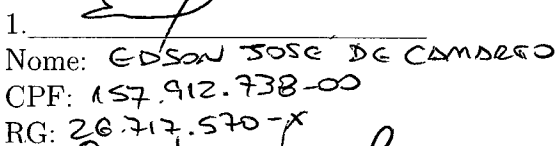 1.
Nome: EDSON JOSE DE CAMARGO
CPF: 157.912.738-00
RG: 26.717.570-X